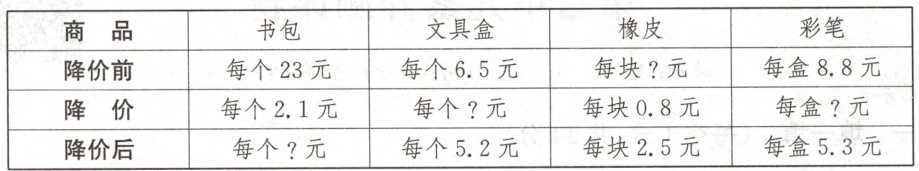 商 品 书包 文具盒 橡皮 彩笔
降价前 每个 23 元 每个 6.5 元 每块?元 每盒 8.8 元
降 价 每个 2.1 元 每个?元 每块 0.8 元 每盒?元
降价后 每个?元 每个 5.2 元 每块 2.5 元 每盒 5.3 元